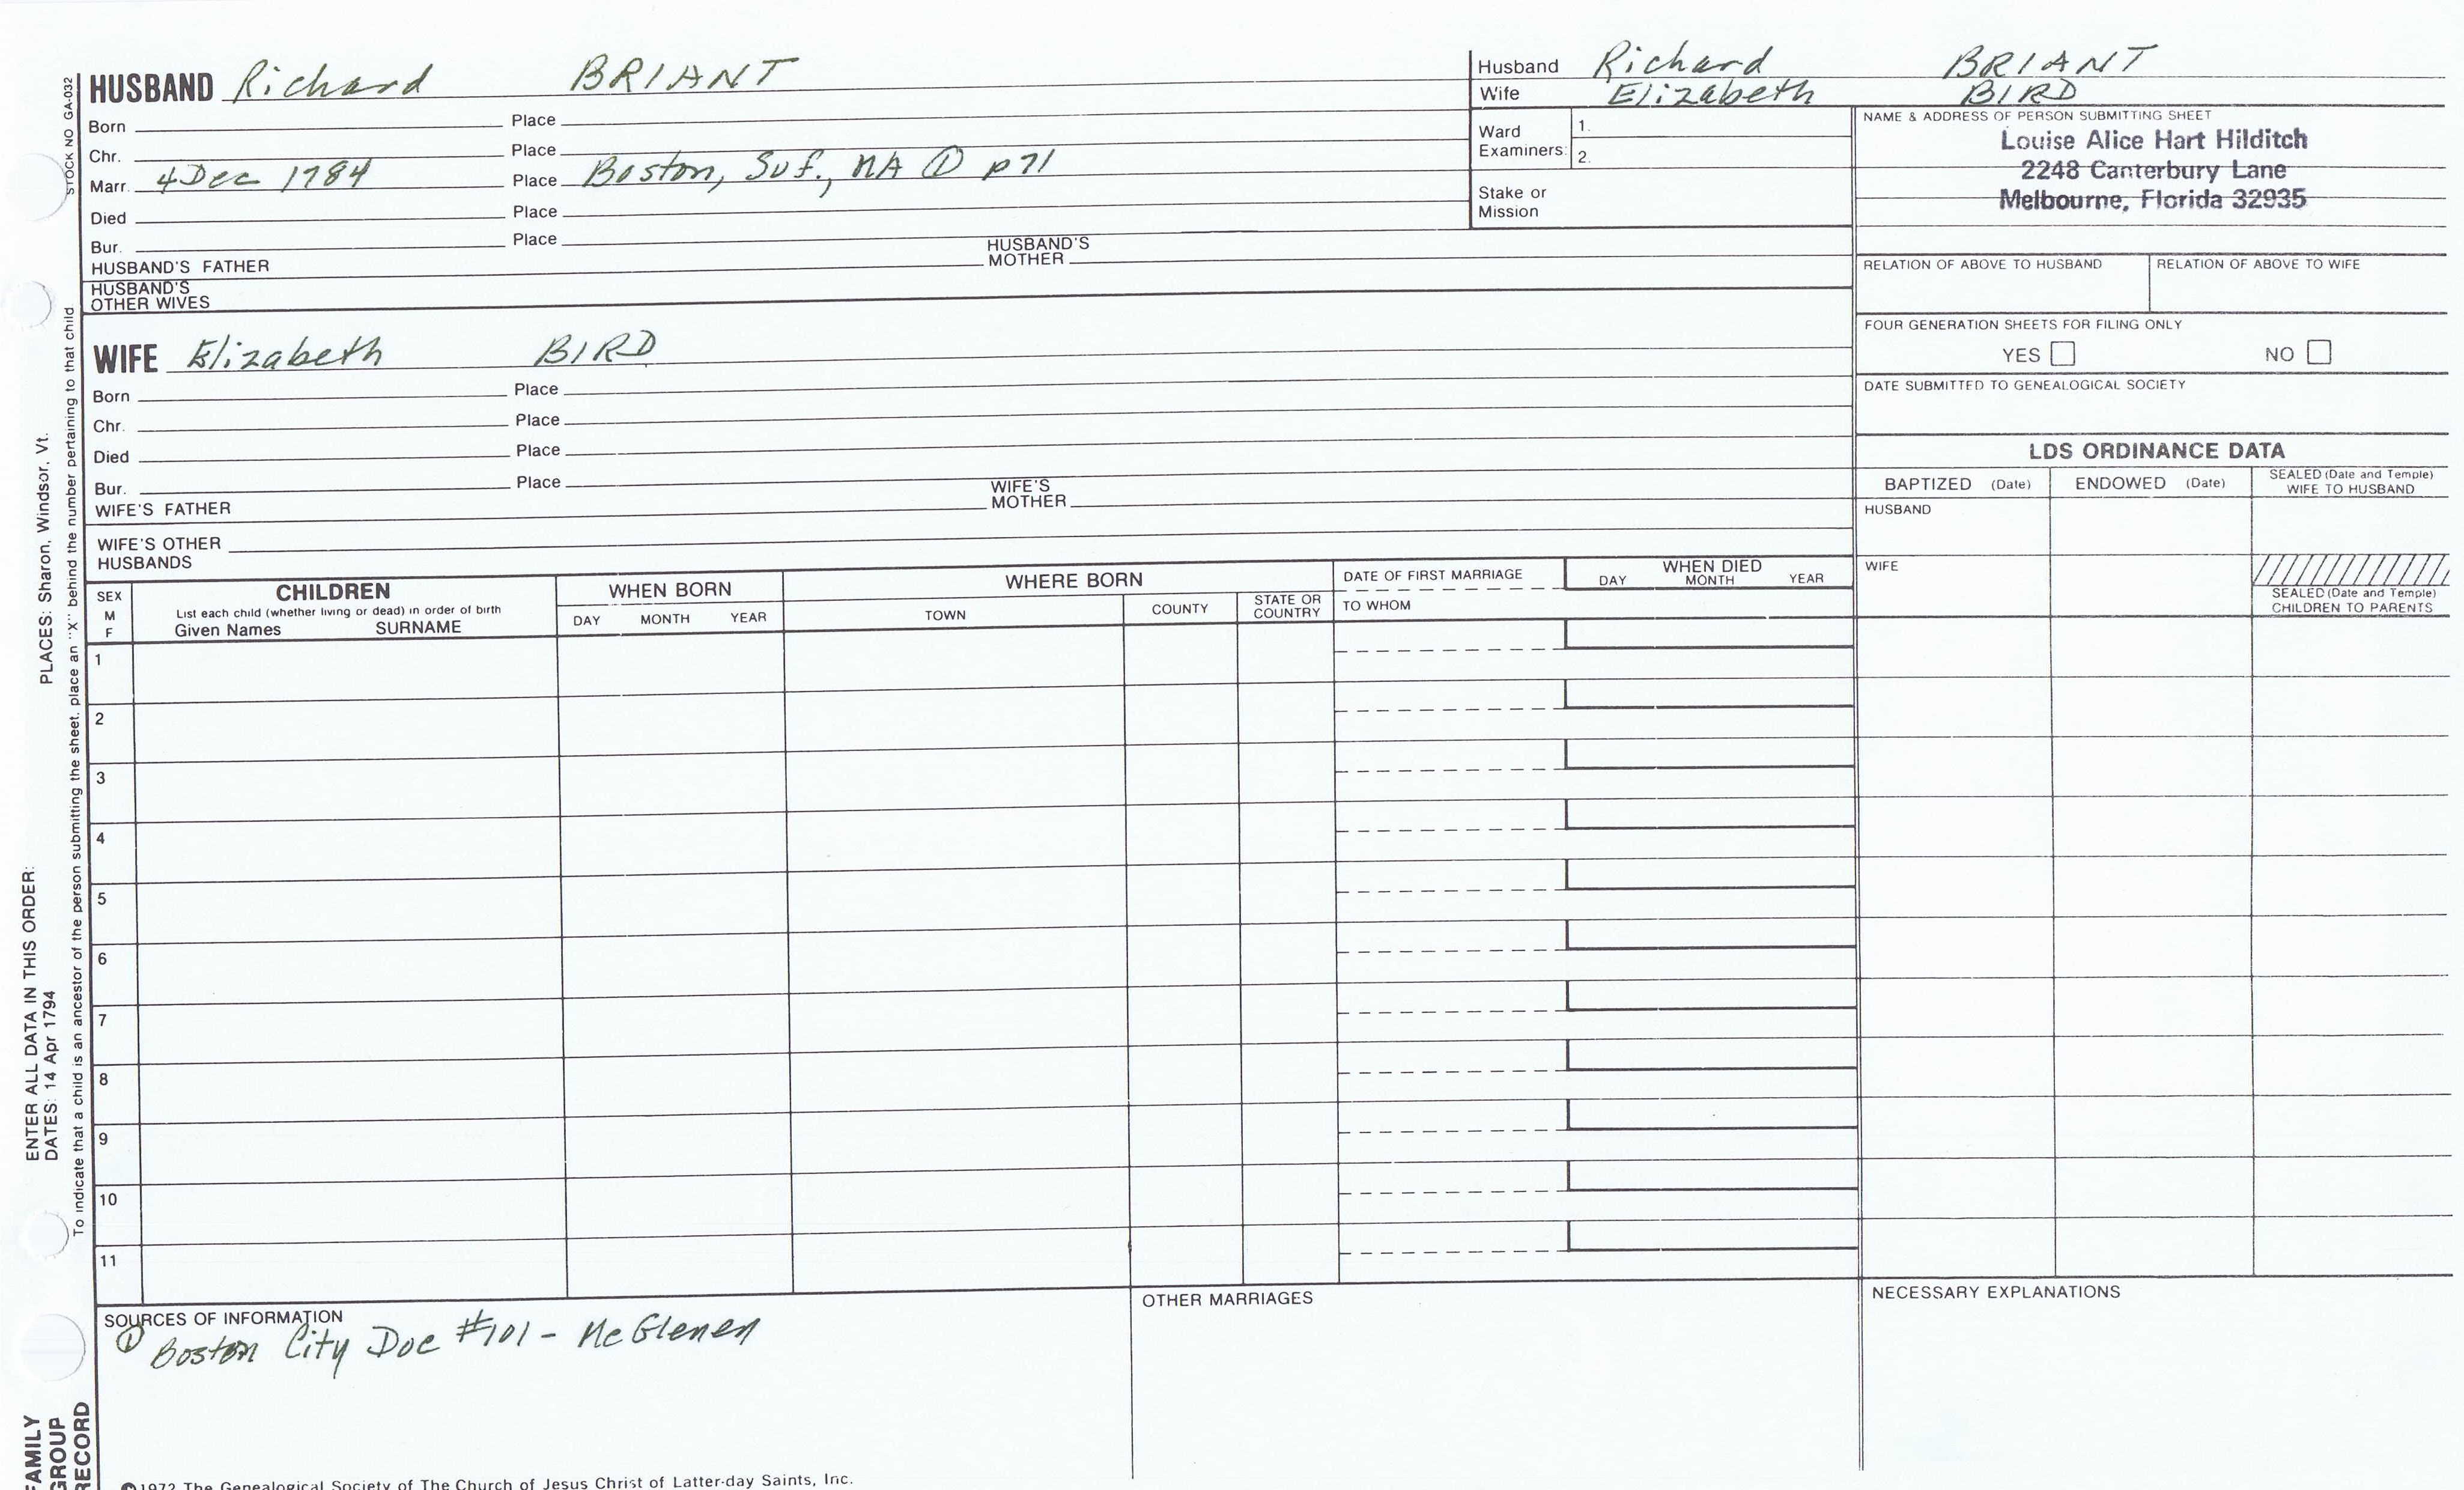 HUSBAND Richard BRIANT
Born Place
Chr. Place
Marr. 4 Dec 1784 Place Boston, Suf., MA ① p 71
Died Place
Bur. Place
HUSBAND'S FATHER HUSBAND'S MOTHER
HUSBAND'S
OTHER WIVES
WIFE Elizabeth BIRD
Born Place
Chr. Place
Died Place
Bur. Place
WIFE'S FATHER WIFE'S MOTHER
WIFE'S OTHER
HUSBANDS
Husband Richard BRIANT
Wife Elizabeth BIRD
Ward
Examiners: 1.
2.
Stake or
Mission
NAME & ADDRESS OF PERSON SUBMITTING SHEET
Louise Alice Hart Hilditch
2248 Canterbury Lane
Melbourne, Florida 32935
RELATION OF ABOVE TO HUSBAND RELATION OF ABOVE TO WIFE
FOUR GENERATION SHEETS FOR FILING ONLY
YES NO
DATE SUBMITTED TO GENEALOGICAL SOCIETY
LDS ORDINANCE DATA
BAPTIZED (Date) ENDOWED (Date) SEALED (Date and Temple)
WIFE TO HUSBAND
HUSBAND
WIFE
SEALED (Date and Temple)
CHILDREN TO PARENTS
SEX
M
F
CHILDREN
List each child (whether living or dead) in order of birth
Given Names SURNAME
WHEN BORN
DAY MONTH YEAR
WHERE BORN
TOWN COUNTY STATE OR
COUNTRY
DATE OF FIRST MARRIAGE
TO WHOM
WHEN DIED
DAY MONTH YEAR
1
2
3
4
5
6
7
8
9
10
11
SOURCES OF INFORMATION
① Boston City Doc #101 - McGlenen
OTHER MARRIAGES
NECESSARY EXPLANATIONS
©1972 The Genealogical Society of The Church of Jesus Christ of Latter-day Saints, Inc.
STOCK NO GA-032
To indicate that a child is an ancestor of the person submitting the sheet, place an "X" behind the number pertaining to that child
ENTER ALL DATA IN THIS ORDER:
DATES: 14 Apr 1794 PLACES: Sharon, Windsor, Vt.
FAMILY
GROUP
RECORD